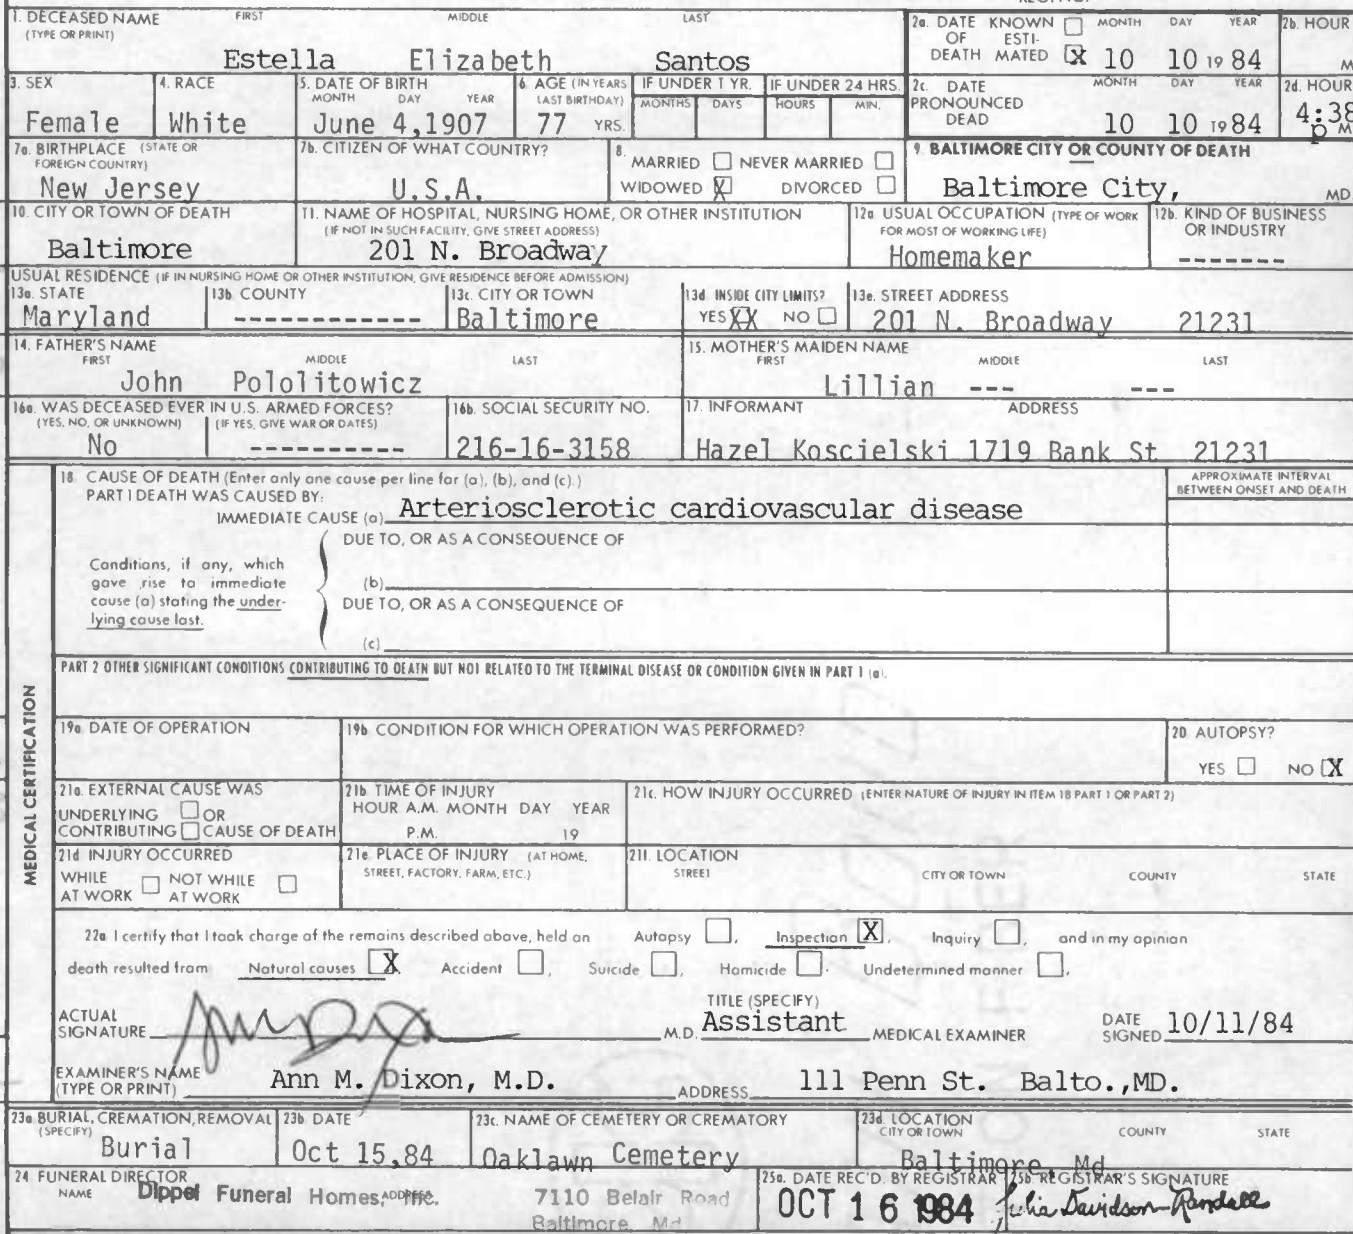 1. DECEASED NAME FIRST MIDDLE LAST
(TYPE OR PRINT)
Estella Elizabeth Santos
2a. DATE KNOWN ☐ MONTH DAY YEAR
OF ESTI-
DEATH MATED ☒ 10 10 19 84
2b. HOUR
M
3. SEX
Female
4. RACE
White
5. DATE OF BIRTH
MONTH DAY YEAR
June 4,1907
6. AGE (IN YEARS
LAST BIRTHDAY)
77 YRS.
IF UNDER 1 YR.
MONTHS DAYS
IF UNDER 24 HRS.
HOURS MIN.
2c. DATE MONTH DAY YEAR
PRONOUNCED
DEAD 10 10 19 84
2d. HOUR
4:38
p M
7a. BIRTHPLACE (STATE OR
FOREIGN COUNTRY)
New Jersey
7b. CITIZEN OF WHAT COUNTRY?
U.S.A.
8.
MARRIED ☐ NEVER MARRIED ☐
WIDOWED ☒ DIVORCED ☐
9. BALTIMORE CITY OR COUNTY OF DEATH
Baltimore City, MD
10. CITY OR TOWN OF DEATH
Baltimore
11. NAME OF HOSPITAL, NURSING HOME, OR OTHER INSTITUTION
(IF NOT IN SUCH FACILITY, GIVE STREET ADDRESS)
201 N. Broadway
12a. USUAL OCCUPATION (TYPE OF WORK
FOR MOST OF WORKING LIFE)
Homemaker
12b. KIND OF BUSINESS
OR INDUSTRY
-------
USUAL RESIDENCE (IF IN NURSING HOME OR OTHER INSTITUTION, GIVE RESIDENCE BEFORE ADMISSION)
13a. STATE
Maryland
13b. COUNTY
-------------
13c. CITY OR TOWN
Baltimore
13d. INSIDE CITY LIMITS?
YES XX NO ☐
13e. STREET ADDRESS
201 N. Broadway 21231
14. FATHER'S NAME
FIRST MIDDLE LAST
John Pololitowicz
15. MOTHER'S MAIDEN NAME
FIRST MIDDLE LAST
Lillian --- ---
16a. WAS DECEASED EVER IN U.S. ARMED FORCES?
(YES, NO, OR UNKNOWN) (IF YES, GIVE WAR OR DATES)
No ----------
16b. SOCIAL SECURITY NO.
216-16-3158
17. INFORMANT ADDRESS
Hazel Koscielski 1719 Bank St 21231
MEDICAL CERTIFICATION
18. CAUSE OF DEATH (Enter only one cause per line for (a), (b), and (c).)
APPROXIMATE INTERVAL
BETWEEN ONSET AND DEATH
PART I DEATH WAS CAUSED BY:
IMMEDIATE CAUSE (a) Arteriosclerotic cardiovascular disease
DUE TO, OR AS A CONSEQUENCE OF
Conditions, if any, which
gave rise to immediate
cause (a) stating the under-
lying cause last.
(b)
DUE TO, OR AS A CONSEQUENCE OF
(c)
PART 2 OTHER SIGNIFICANT CONDITIONS CONTRIBUTING TO DEATH BUT NOT RELATED TO THE TERMINAL DISEASE OR CONDITION GIVEN IN PART 1 (a).
19a. DATE OF OPERATION
19b. CONDITION FOR WHICH OPERATION WAS PERFORMED?
20. AUTOPSY?
YES ☐ NO ☒
21a. EXTERNAL CAUSE WAS
UNDERLYING ☐ OR
CONTRIBUTING ☐ CAUSE OF DEATH
21b. TIME OF INJURY
HOUR A.M. MONTH DAY YEAR
P.M. 19
21c. HOW INJURY OCCURRED (ENTER NATURE OF INJURY IN ITEM 18 PART 1 OR PART 2)
21d. INJURY OCCURRED
WHILE ☐ NOT WHILE ☐
AT WORK AT WORK
21e. PLACE OF INJURY (AT HOME,
STREET, FACTORY, FARM, ETC.)
21f. LOCATION
STREET CITY OR TOWN COUNTY STATE
22a. I certify that I took charge of the remains described above, held an Autopsy ☐, Inspection ☒, Inquiry ☐, and in my opinion
death resulted from Natural causes ☒ Accident ☐, Suicide ☐, Homicide ☐. Undetermined manner ☐,
ACTUAL
SIGNATURE
TITLE (SPECIFY)
M.D. Assistant MEDICAL EXAMINER
DATE
SIGNED 10/11/84
EXAMINER'S NAME
(TYPE OR PRINT) Ann M. Dixon, M.D.
ADDRESS 111 Penn St. Balto.,MD.
23a. BURIAL, CREMATION, REMOVAL
(SPECIFY)
Burial
23b. DATE
Oct 15,84
23c. NAME OF CEMETERY OR CREMATORY
Oaklawn Cemetery
23d. LOCATION
CITY OR TOWN COUNTY STATE
Baltimore, Md
24. FUNERAL DIRECTOR
NAME Dippel Funeral Homes, Inc. ADDRESS 7110 Belair Road
Baltimore, Md
25a. DATE REC'D. BY REGISTRAR
OCT 16 1984
25b. REGISTRAR'S SIGNATURE
Julia Davidson-Randall